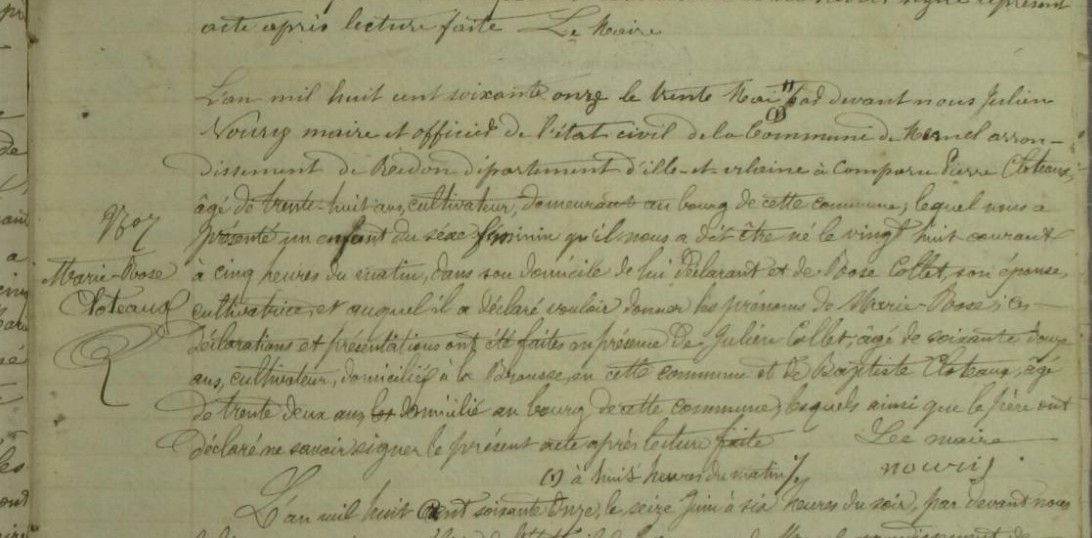 acte après lecture faite Le Maire
L'an mil huit cent soixante onze le trente Mai (1) par devant nous Julien
Nourry maire et officier de l'état civil de la Commune de Mernel arron-
dissement de Redon département d'ille-et-vilaine à Comparu Pierre Cloteaux,
âgé de trente-huit ans, cultivateur, demeurant au bourg de cette commune, lequel nous a
présenté un enfant du sexe féminin qu'il nous a dit être né le vingt huit courant
Marie-Rose
à cinq heures du matin, dans son domicile de lui déclarant et de Rose Collet, son épouse,
Cloteaux
cultivatrice, et auquel il a déclaré vouloir donner les prénoms de Marie-Rose; Ces
déclarations et présentations ont été faites en présence de Julien Collet, âgé de soixante douze
ans, cultivateur, domicilié à la Brousse, en cette commune et de Baptiste Cloteaux, âgé
de trente deux ans, domicilié au bourg de cette commune, lesquels ainsi que le père ont
déclaré ne savoir signer le présent acte après lecture faite Lee maire
(1) à huit heures du matin nouri
L'an mil huit Cent soixante Onze, le seize Juin à six heures du soir, par devant nous